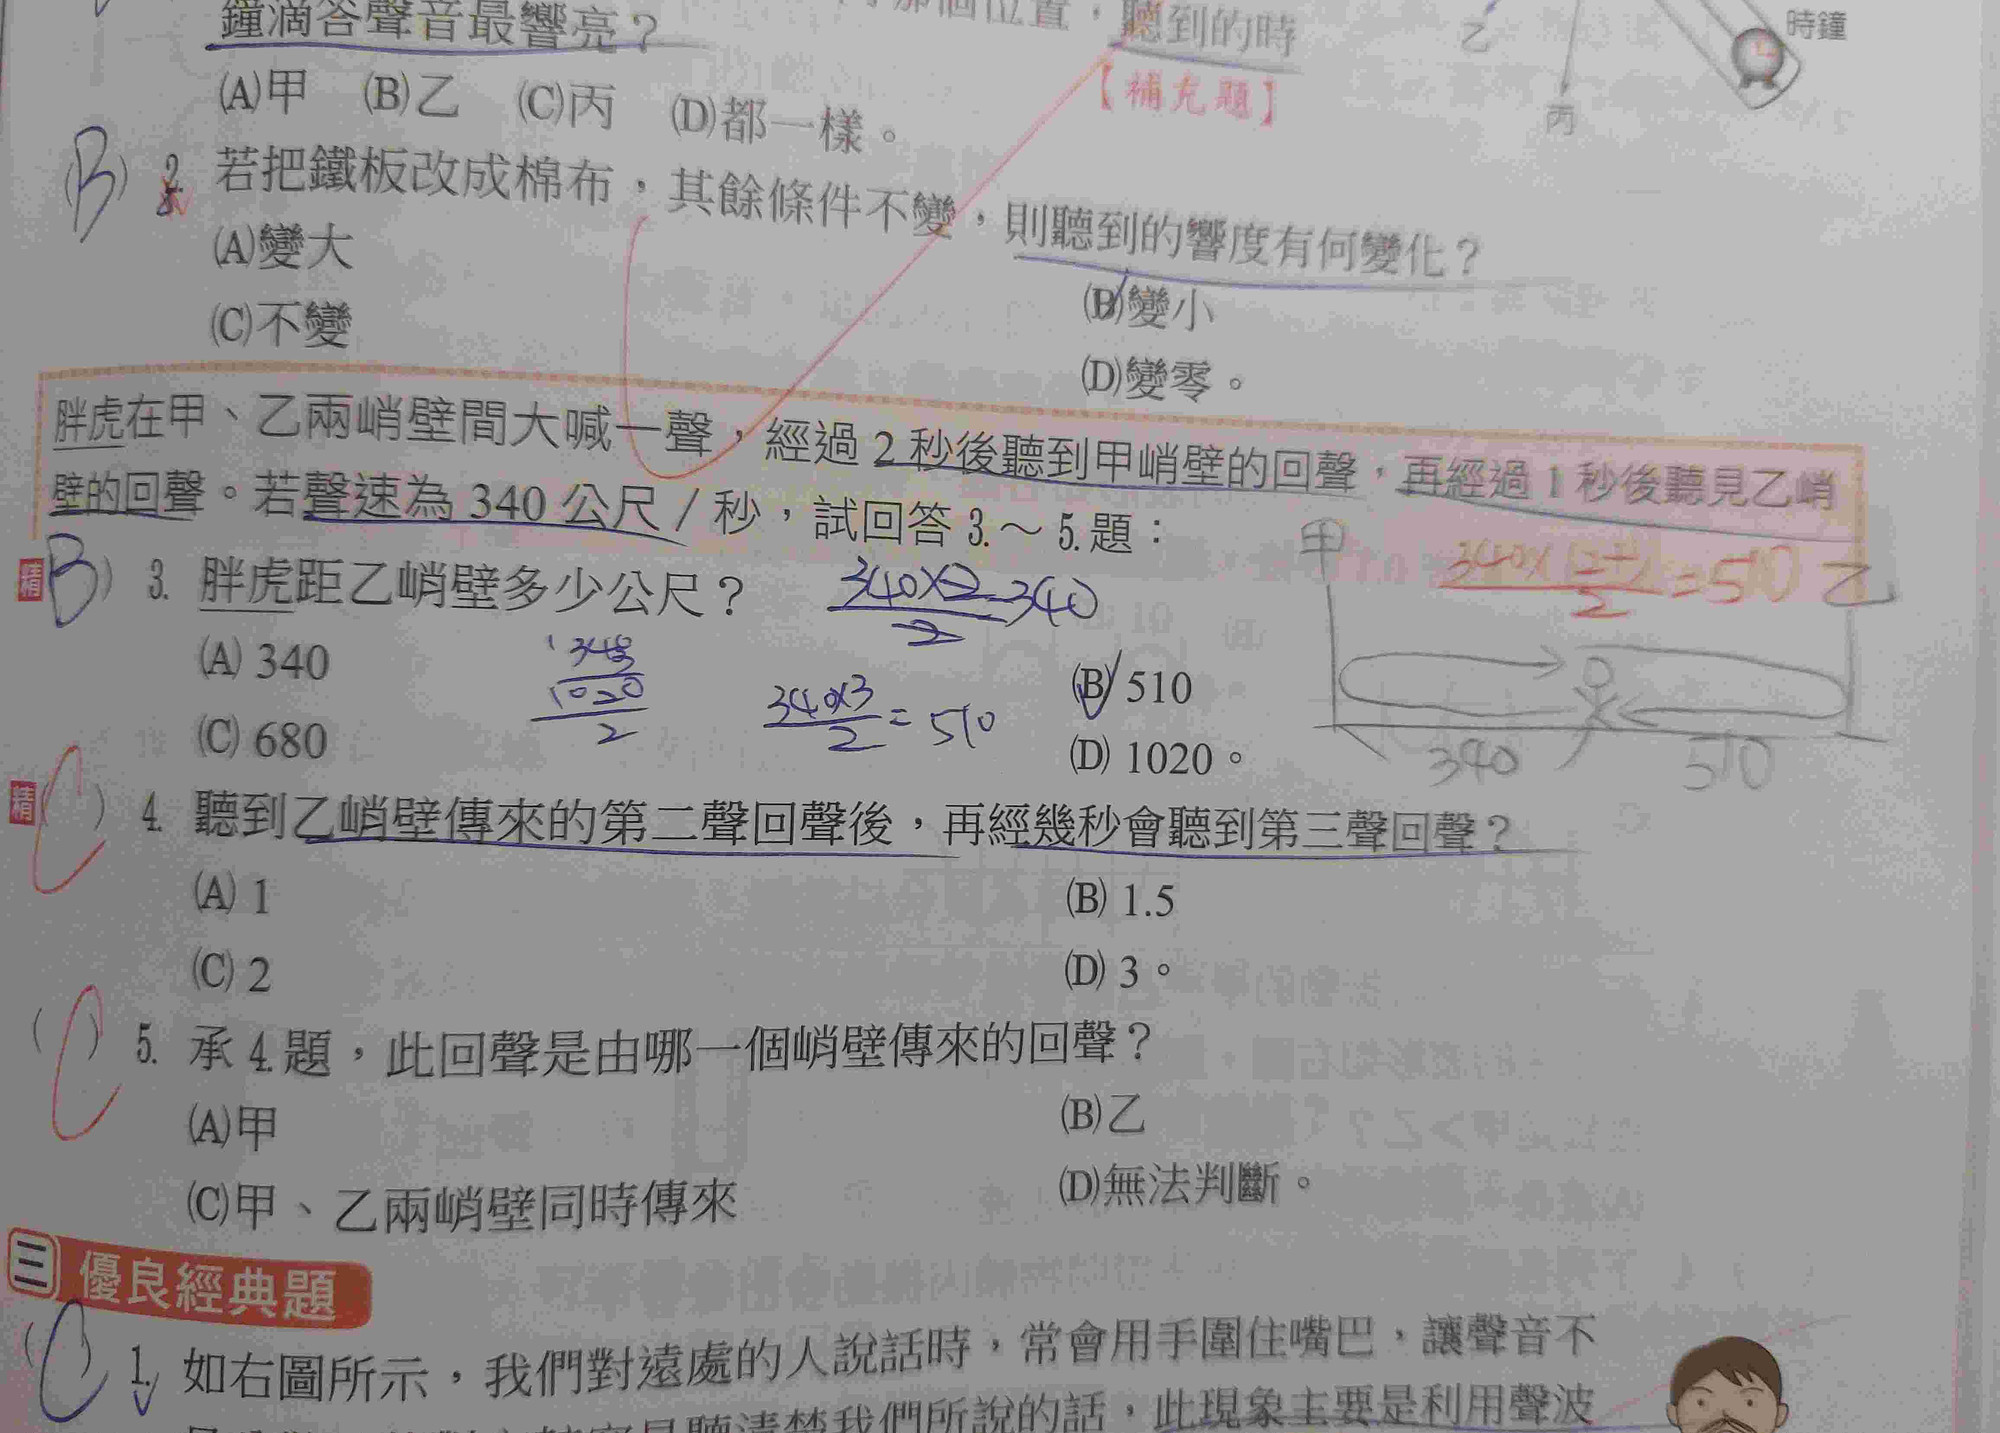 鐘滴答聲音最響亮？
位置，聽到的時
【補充題】
乙
丙
時鐘
(A)甲 (B)乙 (C)丙 (D)都一樣。
(B) 2. 若把鐵板改成棉布，其餘條件不變，則聽到的響度有何變化？
(A)變大
(B)變小
(C)不變
(D)變零。
胖虎在甲、乙兩峭壁間大喊一聲，經過 2 秒後聽到甲峭壁的回聲，再經過 1 秒後聽見乙峭
壁的回聲。若聲速為 340 公尺／秒，試回答 3.～ 5.題：
精 (B) 3. 胖虎距乙峭壁多少公尺？
(A) 340
(B) 510
(C) 680
(D) 1020。
340×2/2=340
1020/2
340×3/2=510
甲
340×(2+1)/2=510
乙
340
510
精 (C) 4. 聽到乙峭壁傳來的第二聲回聲後，再經幾秒會聽到第三聲回聲？
(A) 1
(B) 1.5
(C) 2
(D) 3。
(C) 5. 承 4.題，此回聲是由哪一個峭壁傳來的回聲？
(A)甲
(B)乙
(C)甲、乙兩峭壁同時傳來
(D)無法判斷。
三 優良經典題
(C) 1. 如右圖所示，我們對遠處的人說話時，常會用手圍住嘴巴，讓聲音不
聽清楚我們所說的話，此現象主要是利用聲波